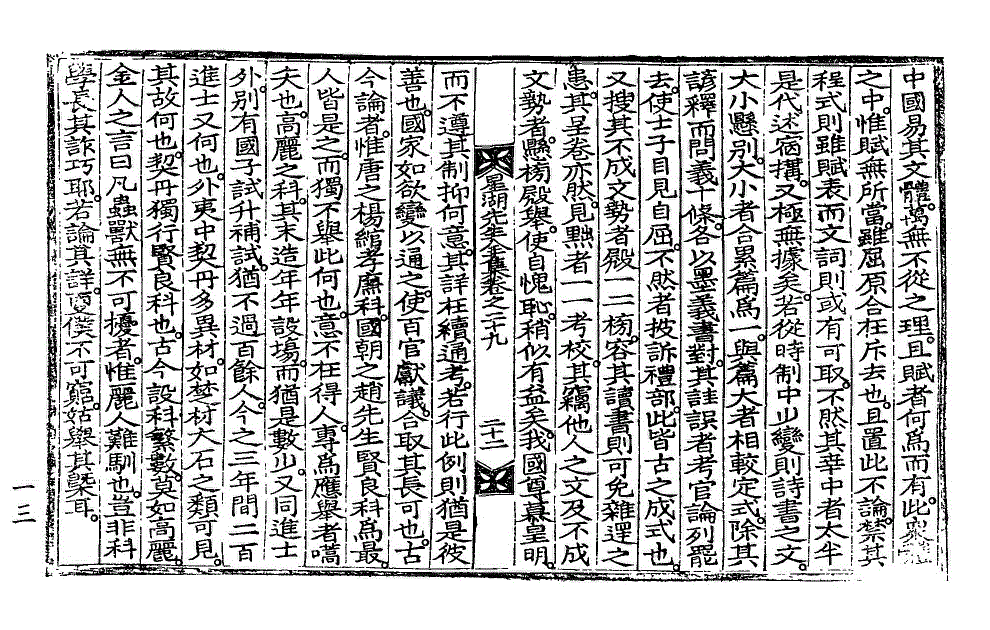 中國易其文體。萬無不從之理。且賦者何爲而有。此衆
之中。惟賦無所當。雖屈原合在斥去也。且置此不論。禁其
程式則雖賦表而文詞則或有可取。不然其幸中者太半
是代述宿搆。又極無據矣。若從時制中少變則詩書之文
大小懸別。大小者合累篇爲一。與篇大者相較定式。除其
諺釋而問義十條。各以墨義書對。其註誤者考官論列罷
去。使士子目見自屈。不然者披訴禮部。此皆古之成式也。
又搜其不成文勢者殿一二榜。容其讀書則可免雜遝之
患。其呈卷亦然。見黜者一一考校。其竊他人之文及不成
文勢者。懸榜殿舉。使自愧恥。稍似有益矣。我國尊慕皇明。
星湖先生全集卷之二十九
二十二
而不遵其制抑何意。其詳在續通考。若行此例則猶是彼
善也。國家如欲變以通之。使百官獻議。合取其長可也。古
今論者。惟唐之楊綰孝廉科。國朝之趙先生賢良科爲最。
人皆是之。而獨不舉此何也。意不在得人。專爲應舉者嚆
矢也。高麗之科。其末造年年設場。而猶是數少。又同進士
外。別有國子試升補試。猶不過百餘人。今之三年間二百
進士又何也。外夷中契丹多異材。如梦材大石之類可見。
其故何也。契丹獨行賢良科也。古今設科繁數。莫如高麗。
金人之言曰凡蟲獸無不可擾者。惟麗人難馴也。豈非科
學長其詐巧耶。若論其詳。更僕不可窮。姑舉其槩耳。
一三